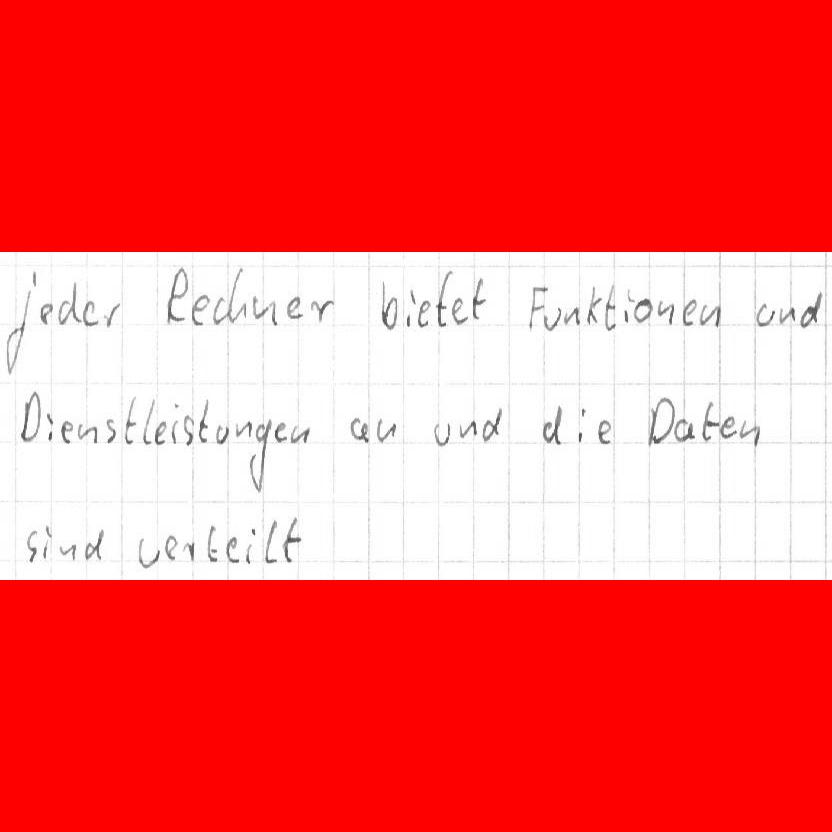 jeder Rechner bietet Funktionen und
Dienstleistungen an und die Daten
sind verteilt